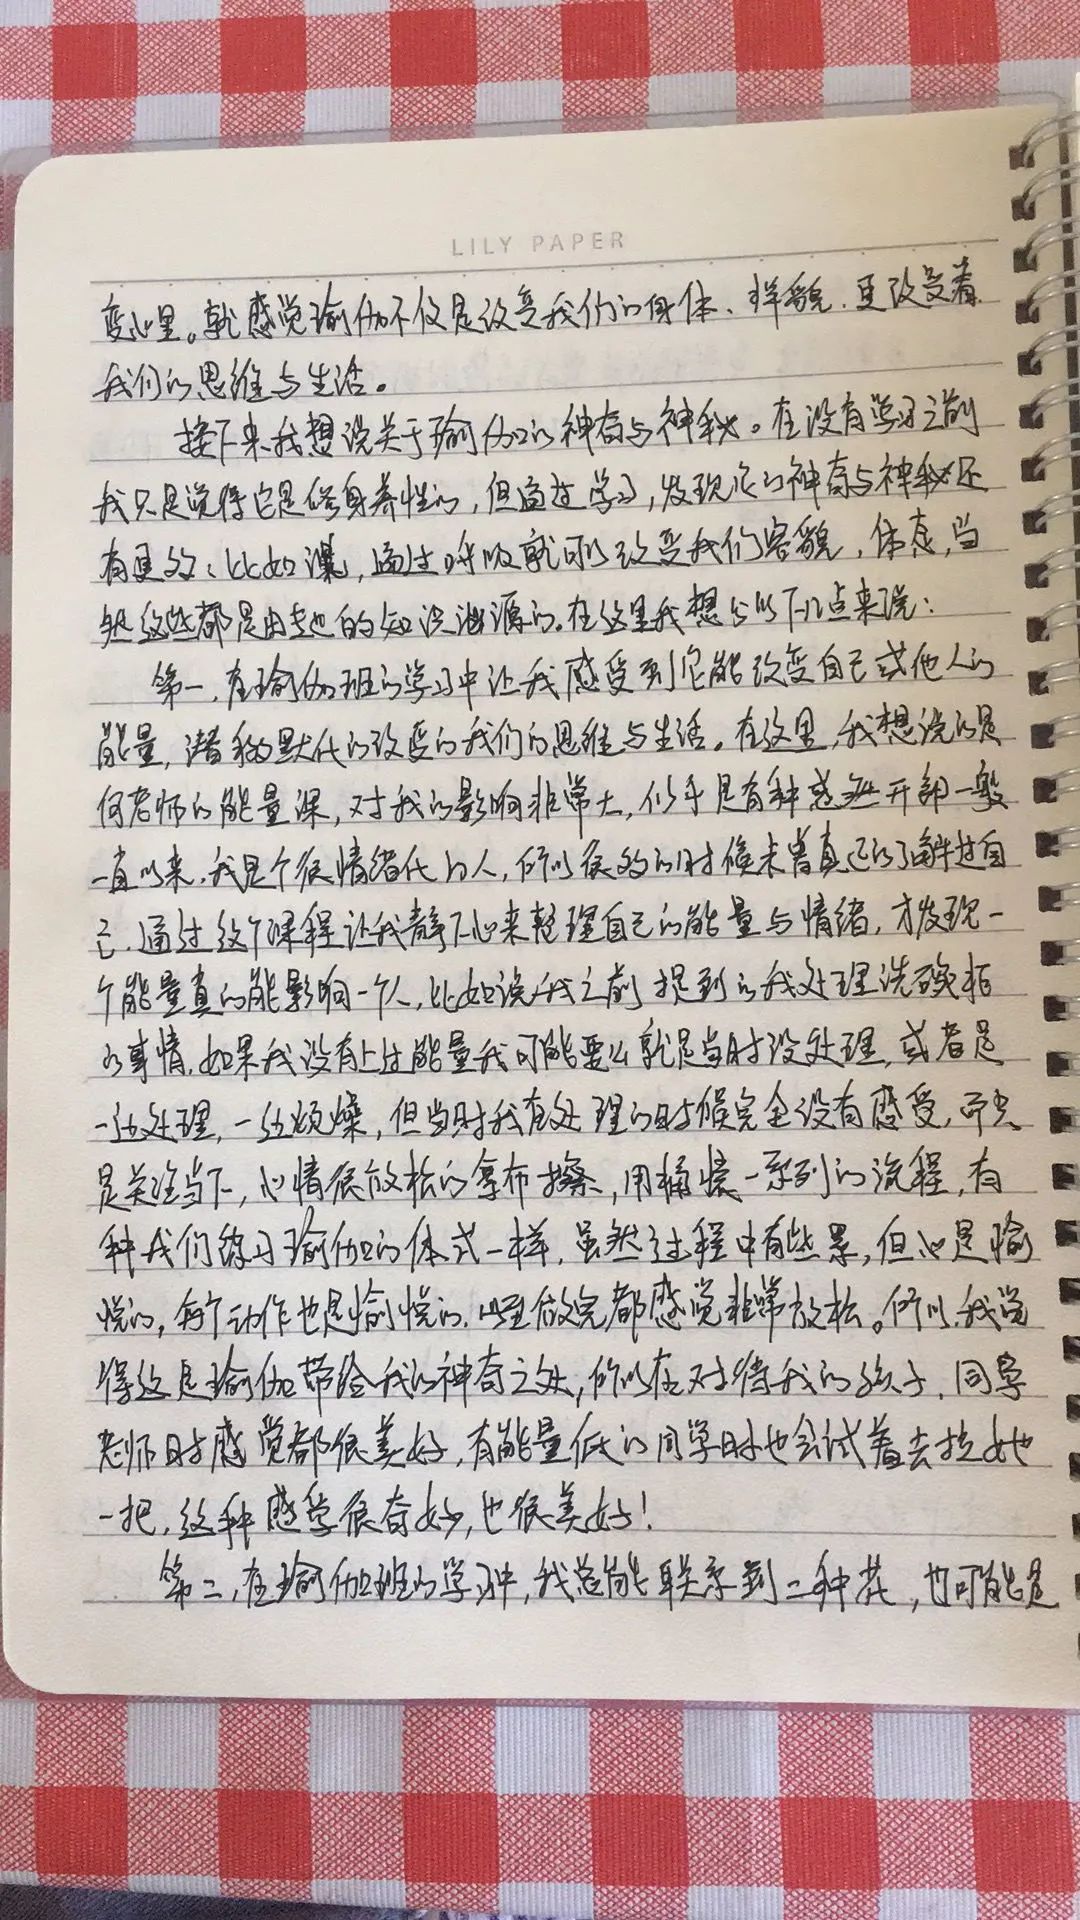 LILY PAPER
变心里。就感觉瑜伽不仅是改变我们的身体、样貌、更改变着
我们的思维与生活。
接下来我想说关于瑜伽的神奇与神秘。在没有学习之前
我只是觉得它是修身养性的，但通过学习，发现它的神奇与神秘还
有更多、比如课，通过呼吸就可以改变我们容貌，体态，当
然这些都是由专业的知识渊源的。在这里我想分以下几点来说：
第一，在瑜伽班的学习中让我感受到它能改变自己或他人的
能量，潜移默化的改变的我们的思维与生活。在这里，我想说的是
何老师的能量课，对我的影响非常大，似乎是有种茅开部一般
一直以来，我是个很情绪化的人，所以很多的时候未曾真正的了解过自
己，通过这个课程让我静下心来整理自己的能量与情绪，才发现一
个能量真的能影响一个人，比如说我之前提到的我处理洗碗柜
的事情，如果我没有上过能量我可能要么就是当时没处理，或者是
一边处理，一边烦燥，但当时我在处理的时候完全没有感受，而只
是关注当下，心情很放松的拿布擦，用桶接一系列的流程，有
种我们练习瑜伽的体式一样，虽然过程中有些累，但心是愉
悦的，每个动作也是愉悦的，做完都感觉非常放松。所以，我觉
得这是瑜伽带给我的神奇之处，所以在对待我的孩子，同学
老师时感觉都很美好，有能量低的同学时也会试着去拉她
一把，这种感学很奇妙，也很美好！
第二，在瑜伽班的学习中，我总能联系到二种花，也可能是